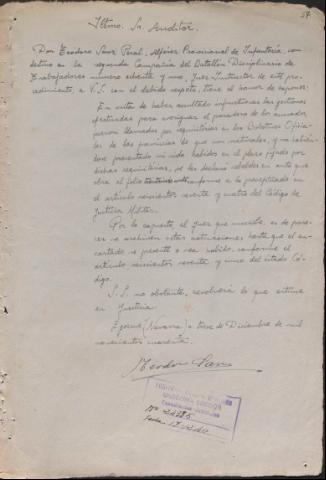 37
Iltmo. Sr. Auditor.
Don Teodoro Sanz Peral, Alférez Provisional de Infantería, con
destino en la segunda Compañía del Batallón Disciplinario de
Trabajadores número ochenta y uno, Juez Instructor de este pro-
cedimiento, a V.S. con el debido respeto, tiene el honor de exponer:
En vista de haber resultado infructuosas las gestiones
efectuadas para averiguar el paradero de los
fueron llamados por requisitorias en los Boletines Oficia-
les de las provincias de que son naturales, y no habién-
dose presentado ni sido habidos en el plazo fijado por
dichas requisitorias, se les declaró rebeldes en auto que
obra al folio conforme a lo preceptuado en
el artículo seiscientos sesenta y cuatro del Código de
Justicia Militar.
Por lo expuesto, el Juez que suscribe, es de pare-
cer se archiven estas actuaciones, hasta que el en-
cartado se presente o sea habido, conforme el
artículo seiscientos sesenta y cinco del citado Có-
digo.
V.S. no obstante, resolverá lo que estime
en Justicia.
(Navarra) a trece de Diciembre de mil
novecientos cuarenta.
Teodoro Sanz
Nº
Fecha